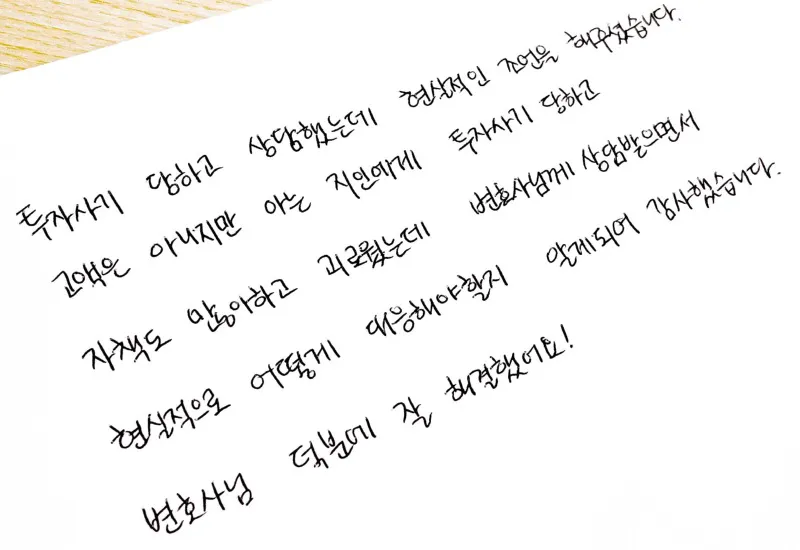 투자사기 당하고 상담했는데 현실적인 조언을 해주셨습니다.
고액은 아니지만 아는 지인에게 투자사기 당하고
자책도 많아하고 괴로웠는데 변호사님께 상담받으면서
현실적으로 어떻게 대응해야할지 알게되어 감사했습니다.
변호사님 덕분에 잘 해결했어요!